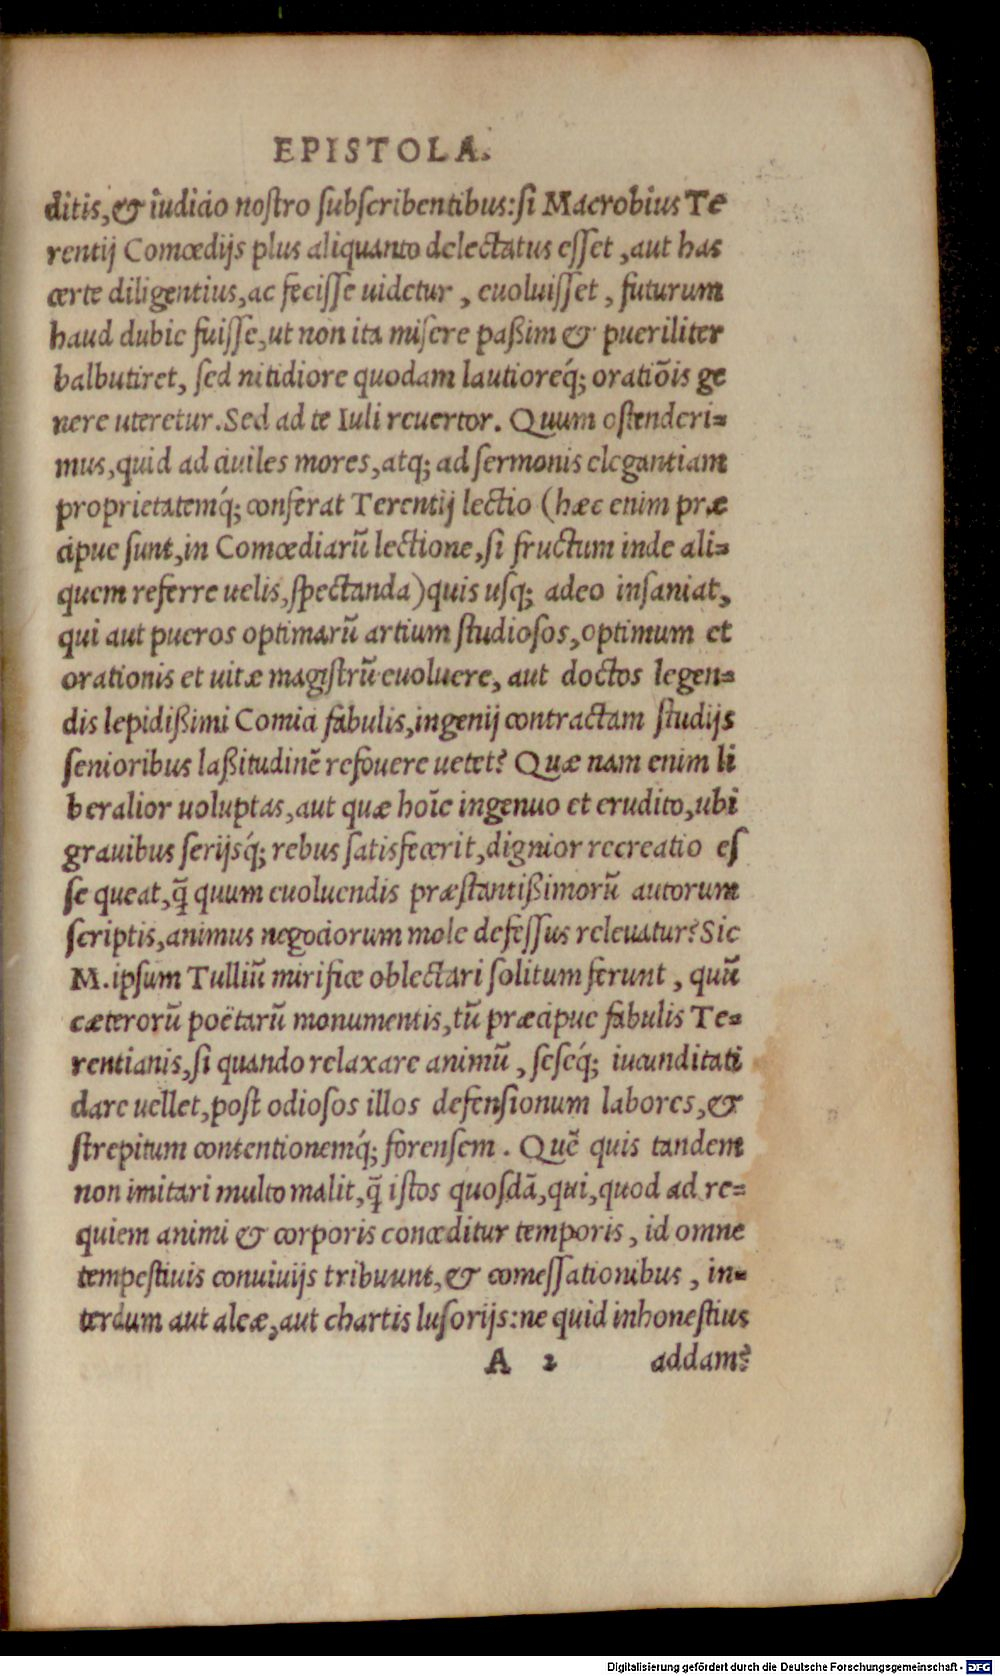 EPISTOLA.
ditis, & iudicio nostro subscribentibus: si Macrobius Te
rentij Comœdijs plus aliquanto delectatus esset, aut has
certe diligentius, ac fecisse uidetur, euoluisset, futurum
haud dubie fuisse, ut non ita misere paßim & pueriliter
balbutiret, sed nitidiore quodam lautioreq́; oratiõis ge
nere uteretur. Sed ad te Iuli reuertor. Quum ostenderi-
mus, quid ad ciuiles mores, atq; ad sermonis elegantiam
proprietatemq́; conferat Terentij lectio (hæc enim præ
cipue sunt, in Comœdiarũ lectione, si fructum inde ali-
quem referre uelis, spectanda) quis usq; adeo insaniat,
qui aut pueros optimarũ artium studiosos, optimum et
orationis et uitæ magistrũ euoluere, aut doctos legen-
dis lepidißimi Comici fabulis, ingenij contractam studijs
senioribus laßitudinẽ refouere uetet? Quæ nam enim li
beralior uoluptas, aut quæ hoĩe ingenuo et erudito, ubi
grauibus serijsq́; rebus satisfecerit, dignior recreatio es
se queat, q̃ quum euoluendis præstantißimorũ autorum
scriptis, animus negociorum mole defessus releuatur? Sic
M. ipsum Tulliũ mirifice oblectari solitum ferunt, quũ
cæterorũ poëtarũ monumentis, tũ præcipue fabulis Te-
rentianis, si quando relaxare animũ, seseq́; iucunditati
dare uellet, post odiosos illos defensionum labores, &
strepitum contentionemq́; forensem. Quẽ quis tandem
non imitari multo malit, q̃ istos quosdã, qui, quod ad re-
quiem animi & corporis conceditur temporis, id omne
tempestiuis conuiuijs tribuunt, & comessationibus, in-
terdum aut aleæ, aut chartis lusorijs: ne quid inhonestius
A 2 addam?
Digitalisierung gefördert durch die Deutsche Forschungsgemeinschaft - DFG